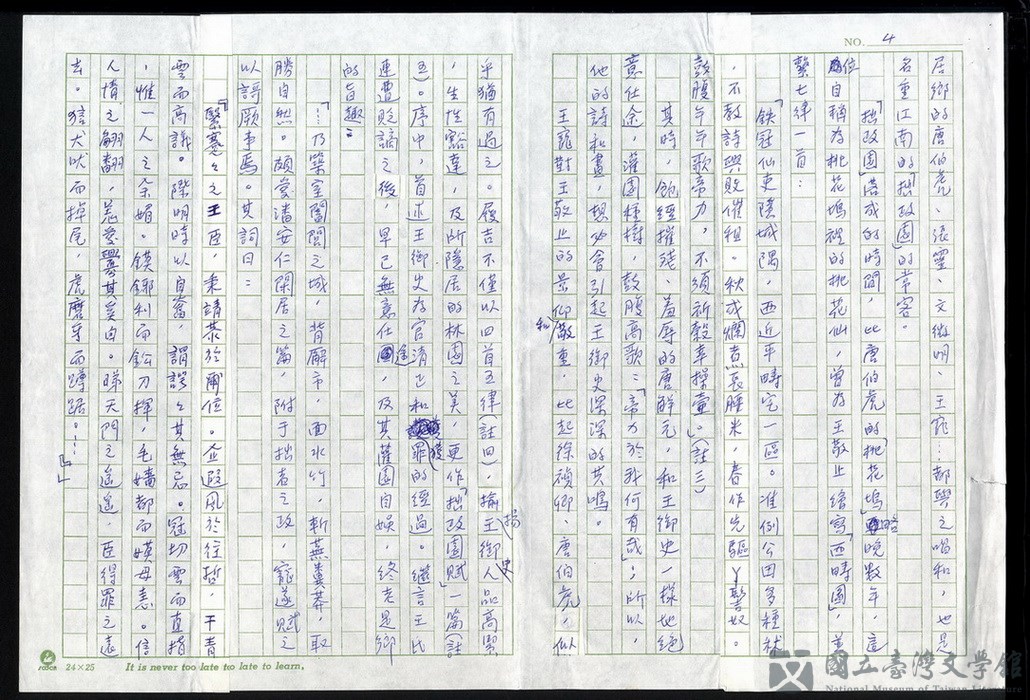 NO. 4
居鄉的唐伯虎、張靈、文徵明、王寵…都與之唱和,也是
名重江南的「拙政園」的常客。
「拙政園」落成的時間,比唐伯虎的桃花塢略晚數年,這
位自稱為桃花塢裡的桃花仙,曾為王敬止繪寫「西疇圖」,並
繫七律一首:
「鐵冠仙吏隱城隅,西近平疇宅一區。准例公田多種秫
,不教詩興敗催租。秋成爛煮長腰米,春作先驅丫髻奴。
鼓腹年年歌帝力,不須祈穀喜操壺。」(註三)
其時,飽經摧殘、羞辱的唐解元,和王御史一樣地絕
意仕途,灌園種樹,鼓腹高歌:「帝力於我何有哉」;所以,
他的詩和畫,想必會引起王御史深深的共鳴。
王寵對王敬止的景仰和敬重,比起徐禎卿、唐伯虎,似
乎猶有過之。履吉不僅以四首五律(註四),揄揚王御史人品高潔
,生性豁達,及所隱居的林園之美,更作「拙政園賦」一篇(註
五)。序中,首述王御史為官清正和獲罪的經過。繼言王氏
連遭貶謫之後,早已無意仕途,及其灌園自娛,終老是鄉
的旨趣:
「…乃築室闔閭之城,背廨市,面水竹,斬蕪糞莽,取
勝自然。頗愛潘安仁閑居之篇,附于拙者之政,寵遂賦之
以詩厥事焉。其詞曰:
「繄蹇蹇之王臣,秉請恭於爾位。企遐風於往哲,干青
雲而高議。際明時以自奮,謂諤諤其無忌。冠切雲而直指
,惟一人之余媚。鏌鋣利而鉛刀揮,毛嬙都而嫫母恚。信
人情之翩翻,羌愛舋其奚自。睇天門之遙遙,臣得罪之遠
去。猘犬吠而掉尾,虎磨牙而蹲踞。…」
24×25
It is never too late to late to learn.
國立臺灣文學館
National Museum of Taiwan Literature